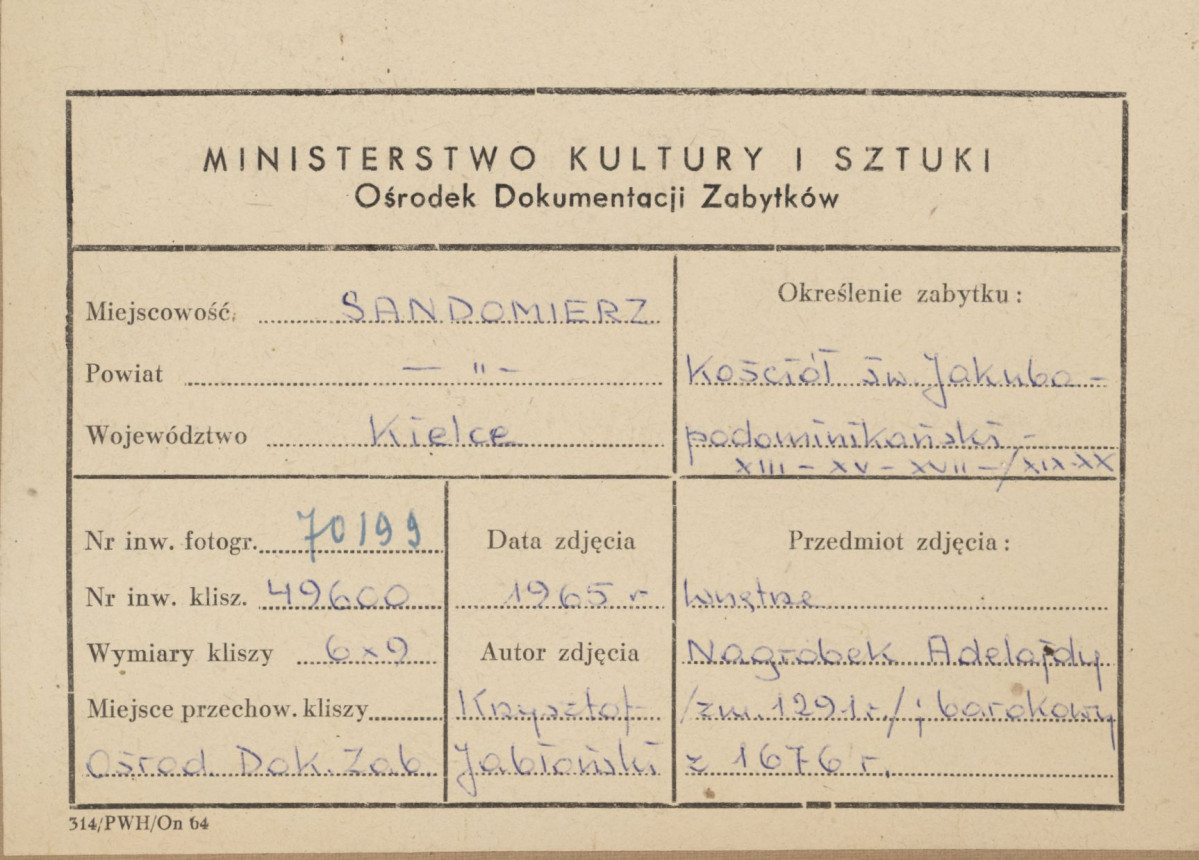 MINISTERSTWO KULTURY I SZTUKI
Ośrodek Dokumentacji Zabytków
Miejscowość SANDOMIERZ
Powiat — " –
Województwo Kielce
Określenie zabytku:
Kościół św. Jakuba –
podominikański –
XIII – XV – XVII – /XIX-XX
Nr inw. fotogr. 70199
Nr inw. klisz. 49600
Wymiary kliszy 6x9
Miejsce przechow. kliszy
Ośrod. Dok. Zab.
Data zdjęcia
1965 r
Autor zdjęcia
Krzysztof
Jabłoński
Przedmiot zdjęcia:
Wnętrze
Nagrobek Adelajdy
/zm. 1291 r./ i barokowy
z 1676 r.
314/PWH/On 64